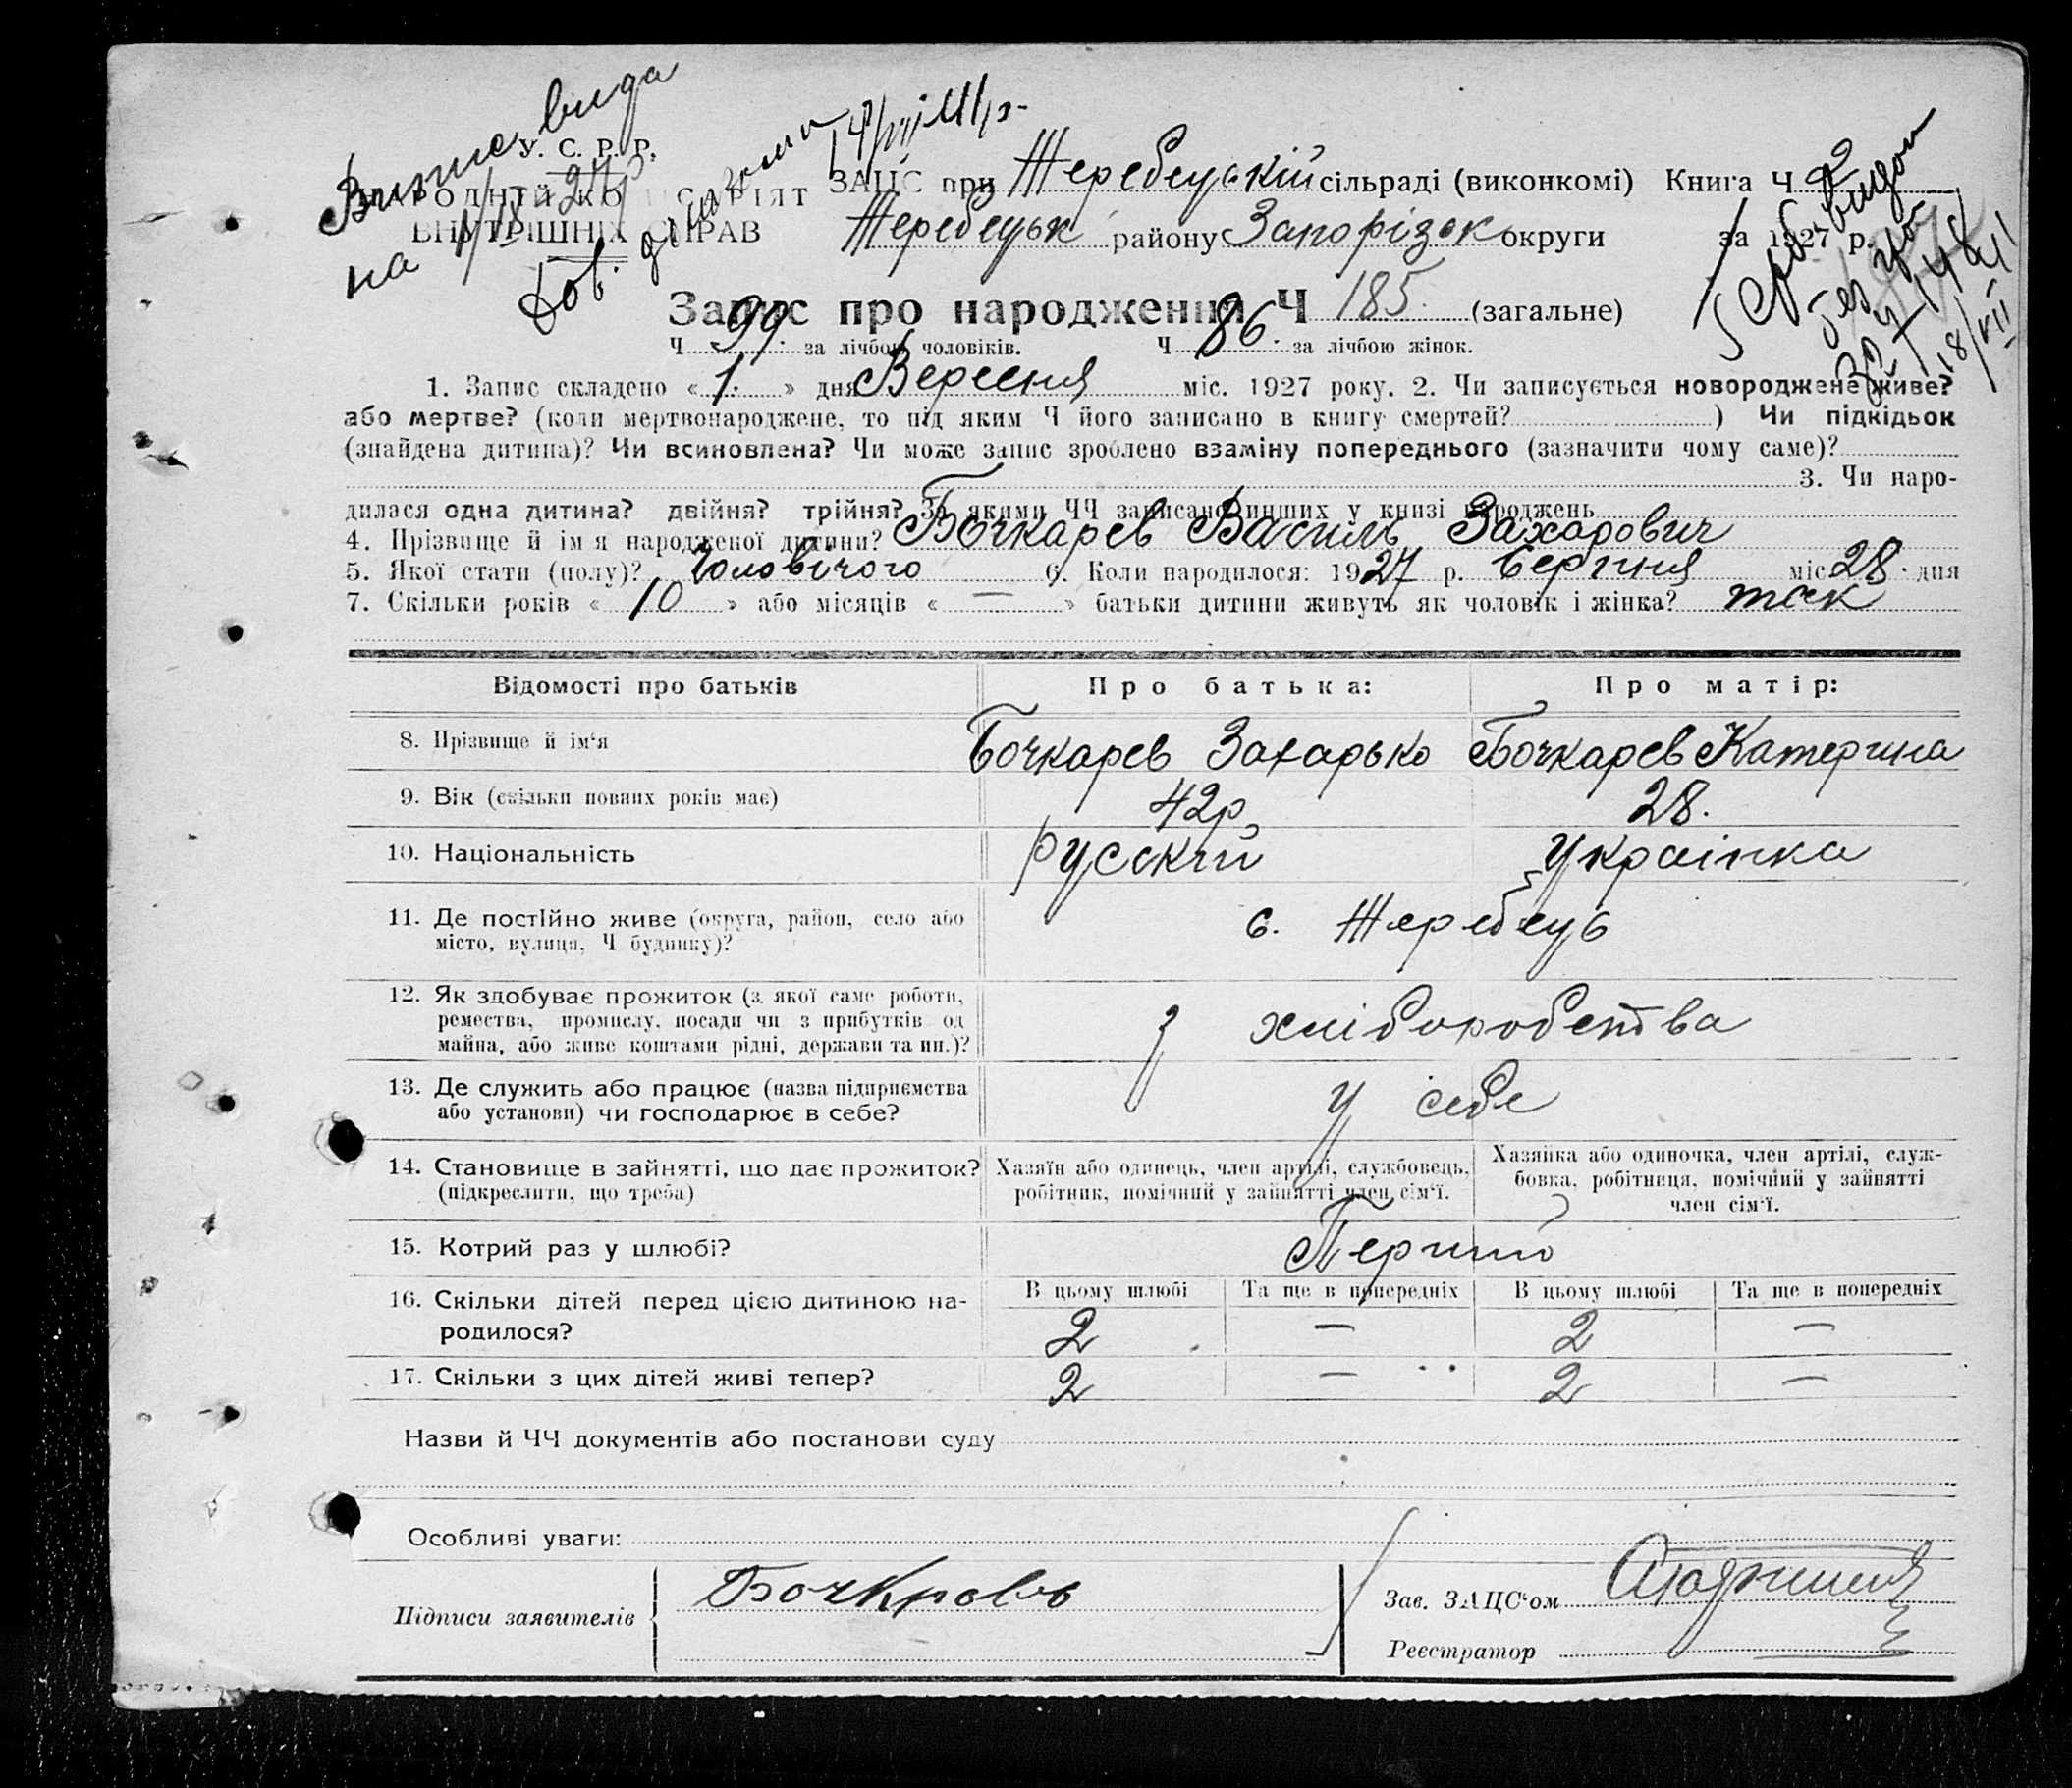 Випис вида
на 1/IX-27 р
У. С. Р. Р.
НАРОДНІЙ КОМІСАРІЯТ
ВНУТРІШНІХ СПРАВ
ЗАЦС при Жеребецькій сільраді (виконкомі) Книга Ч 2
Жеребецьк району Запорізьк округи за 1927 р.
Запис про народження Ч 185 (загальне)
Ч 99. за лічбою чоловіків. Ч 86. за лічбою жінок.
1. Запис складено « 1 » дня Вересня міс. 1927 року. 2. Чи записується новороджене живе?
або мертве? (коли мертвонароджене, то під яким Ч його записано в книгу смертей? ) Чи підкідьок
(знайдена дитина)? Чи всиновлена? Чи може запис зроблено взаміну попереднього (зазначити чому саме)?
3. Чи наро-
дилася одна дитина? двійня? трійня? За якими ЧЧ записано инших у книзі народжень
4. Прізвище й ім я народженої дитини? Бочкарев Василь Захарович
5. Якої стати (полу)? Чоловічого 6. Коли народилося: 1927 р. Серпня міс. 28. дня
7. Скільки років « 10 » або місяців « — » батьки дитини живуть як чоловік і жінка? так
Відомості про батьків Про батька: Про матір:
8. Прізвище й ім'я Бочкарев Захарько Бочкарев Катерина
9. Вік (скільки повних років має) 42р. 28.
10. Національність русский Українка
11. Де постійно живе (округа, район, село або
місто, вулиця, Ч будинку)? с. Жеребець
12. Як здобуває прожиток (з якої саме роботи,
ремества, промислу, посади чи з прибутків од
майна, або живе коштами рідні, держави та ин.)? з хліборобства
13. Де служить або працює (назва підприємства
або установи) чи господарює в себе? у себе
14. Становище в зайнятті, що дає прожиток?
(підкреслити, що треба)
Хазяїн або одинець, член артілі, службовець,
робітник, помічний у зайнятті член сім'ї.
Хазяйка або одиночка, член артілі, служ-
бовка, робітниця, помічний у зайнятті
член сім'ї.
15. Котрий раз у шлюбі? Перший
В цьому шлюбі Та ще в попередніх В цьому шлюбі Та ще в попередніх
16. Скільки дітей перед цією дитиною на-
родилося? 2 — 2 —
17. Скільки з цих дітей живі тепер? 2 — 2 —
Назви й ЧЧ документів або постанови суду
Особливі уваги:
Підписи заявителів
Зав. ЗАЦС'ом
Реєстратор